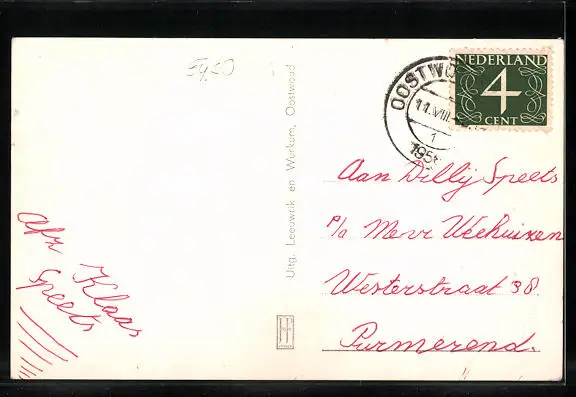 54,50
NEDERLAND
4
CENT
OOSTWO
11.VIII
1
195
Uitg. Leeuwrik en Wurkum, Oostwoud
Aan Dilly Speets
P/a Mevr Veehuizen
Westerstraat 38.
Purmerend.
Afz Klaas
Speets